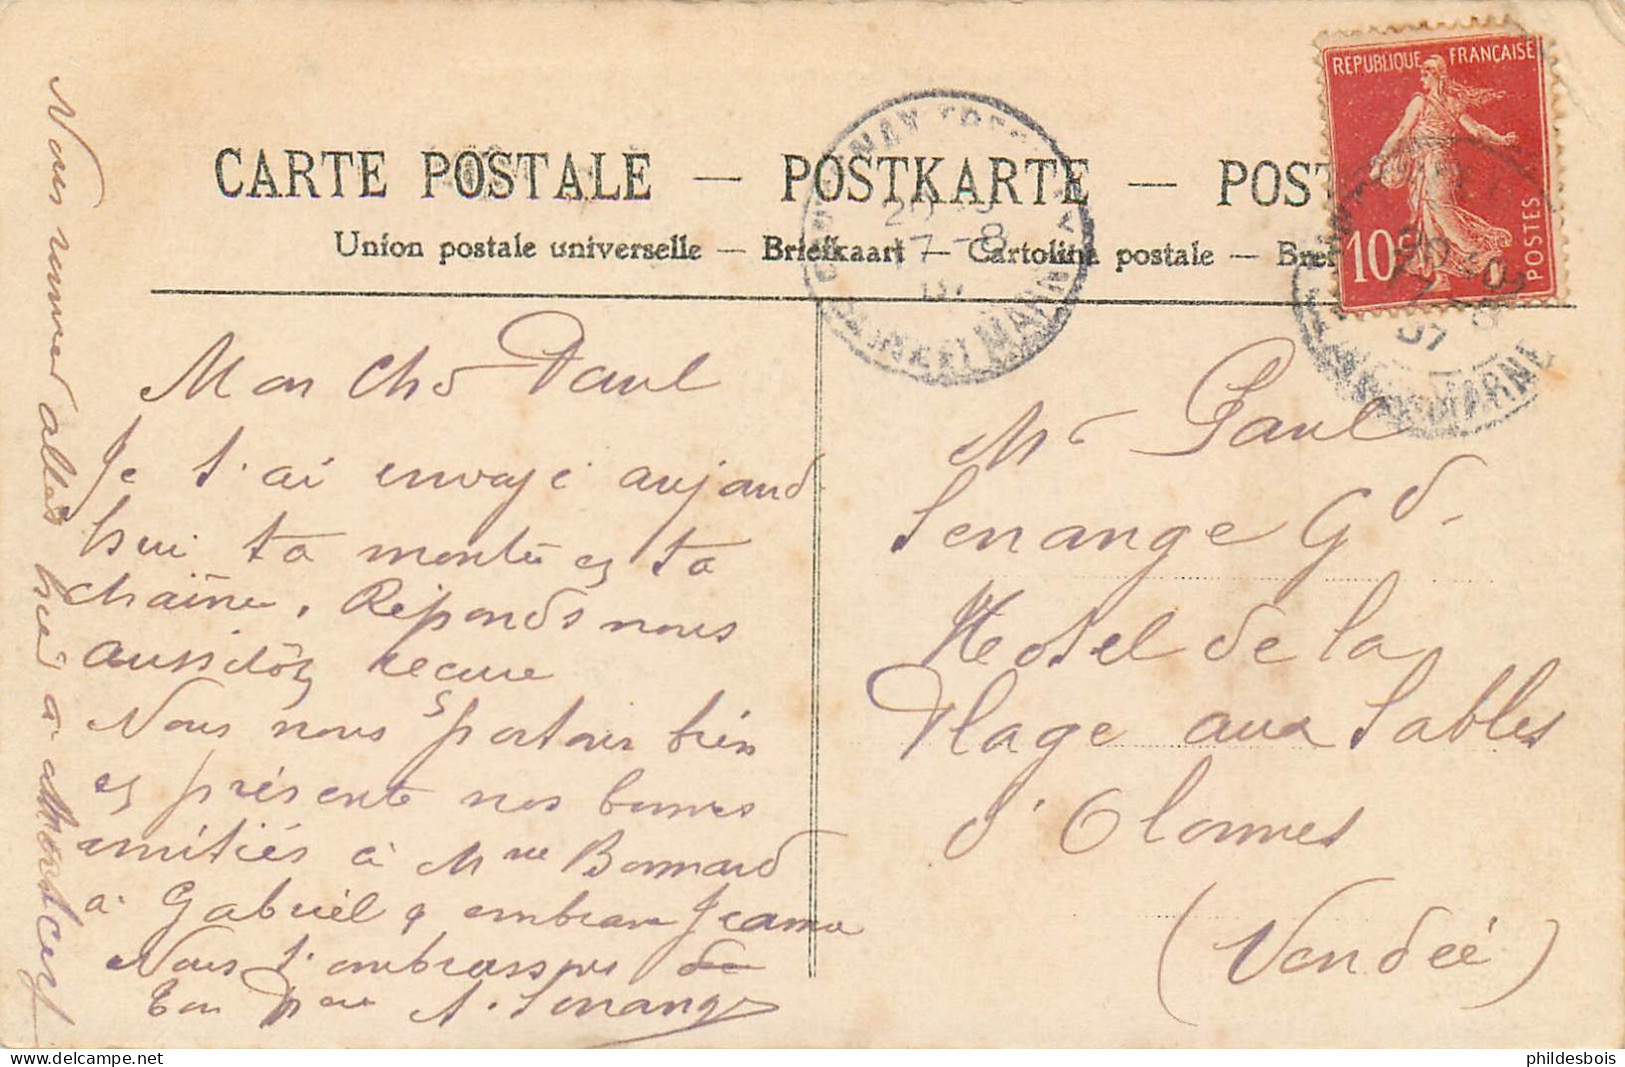 CARTE POSTALE — POSTKARTE — POST
Union postale universelle — Briefkaart — Cartolina postale — Bref
REPUBLIQUE FRANÇAISE
10c
POSTES
20
17-8
07
SEINE ET MARNE
MARNE
07
Mon Cher Paul
Je t'ai envoyé aujourd
hui ta montre et ta
chaîne. Réponds nous
aussitôt recue
Nous nous portons bien
et présente nos bonnes
amitiés à Mme Bonnard
à Gabriel & embrasse Jeanne
Nous t'embrassons
Ton Père A. Senange
Nous sommes allés hier a Montcerf
Mr Paul
Senange Gd.
Hotel de la
Plage aux Sables
d'Olonnes
(Vendéé)
phildesbois